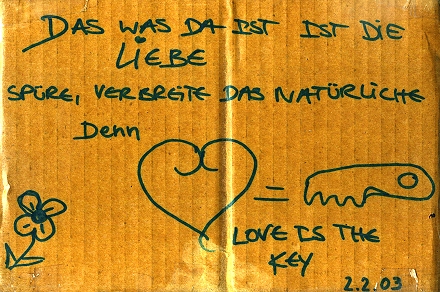 DAS WAS DA IST IST DIE
LIEBE
SPÜRE, VERBREITE DAS NATÜRLICHE
Denn
=
LOVE IS THE
KEY
2.2.03